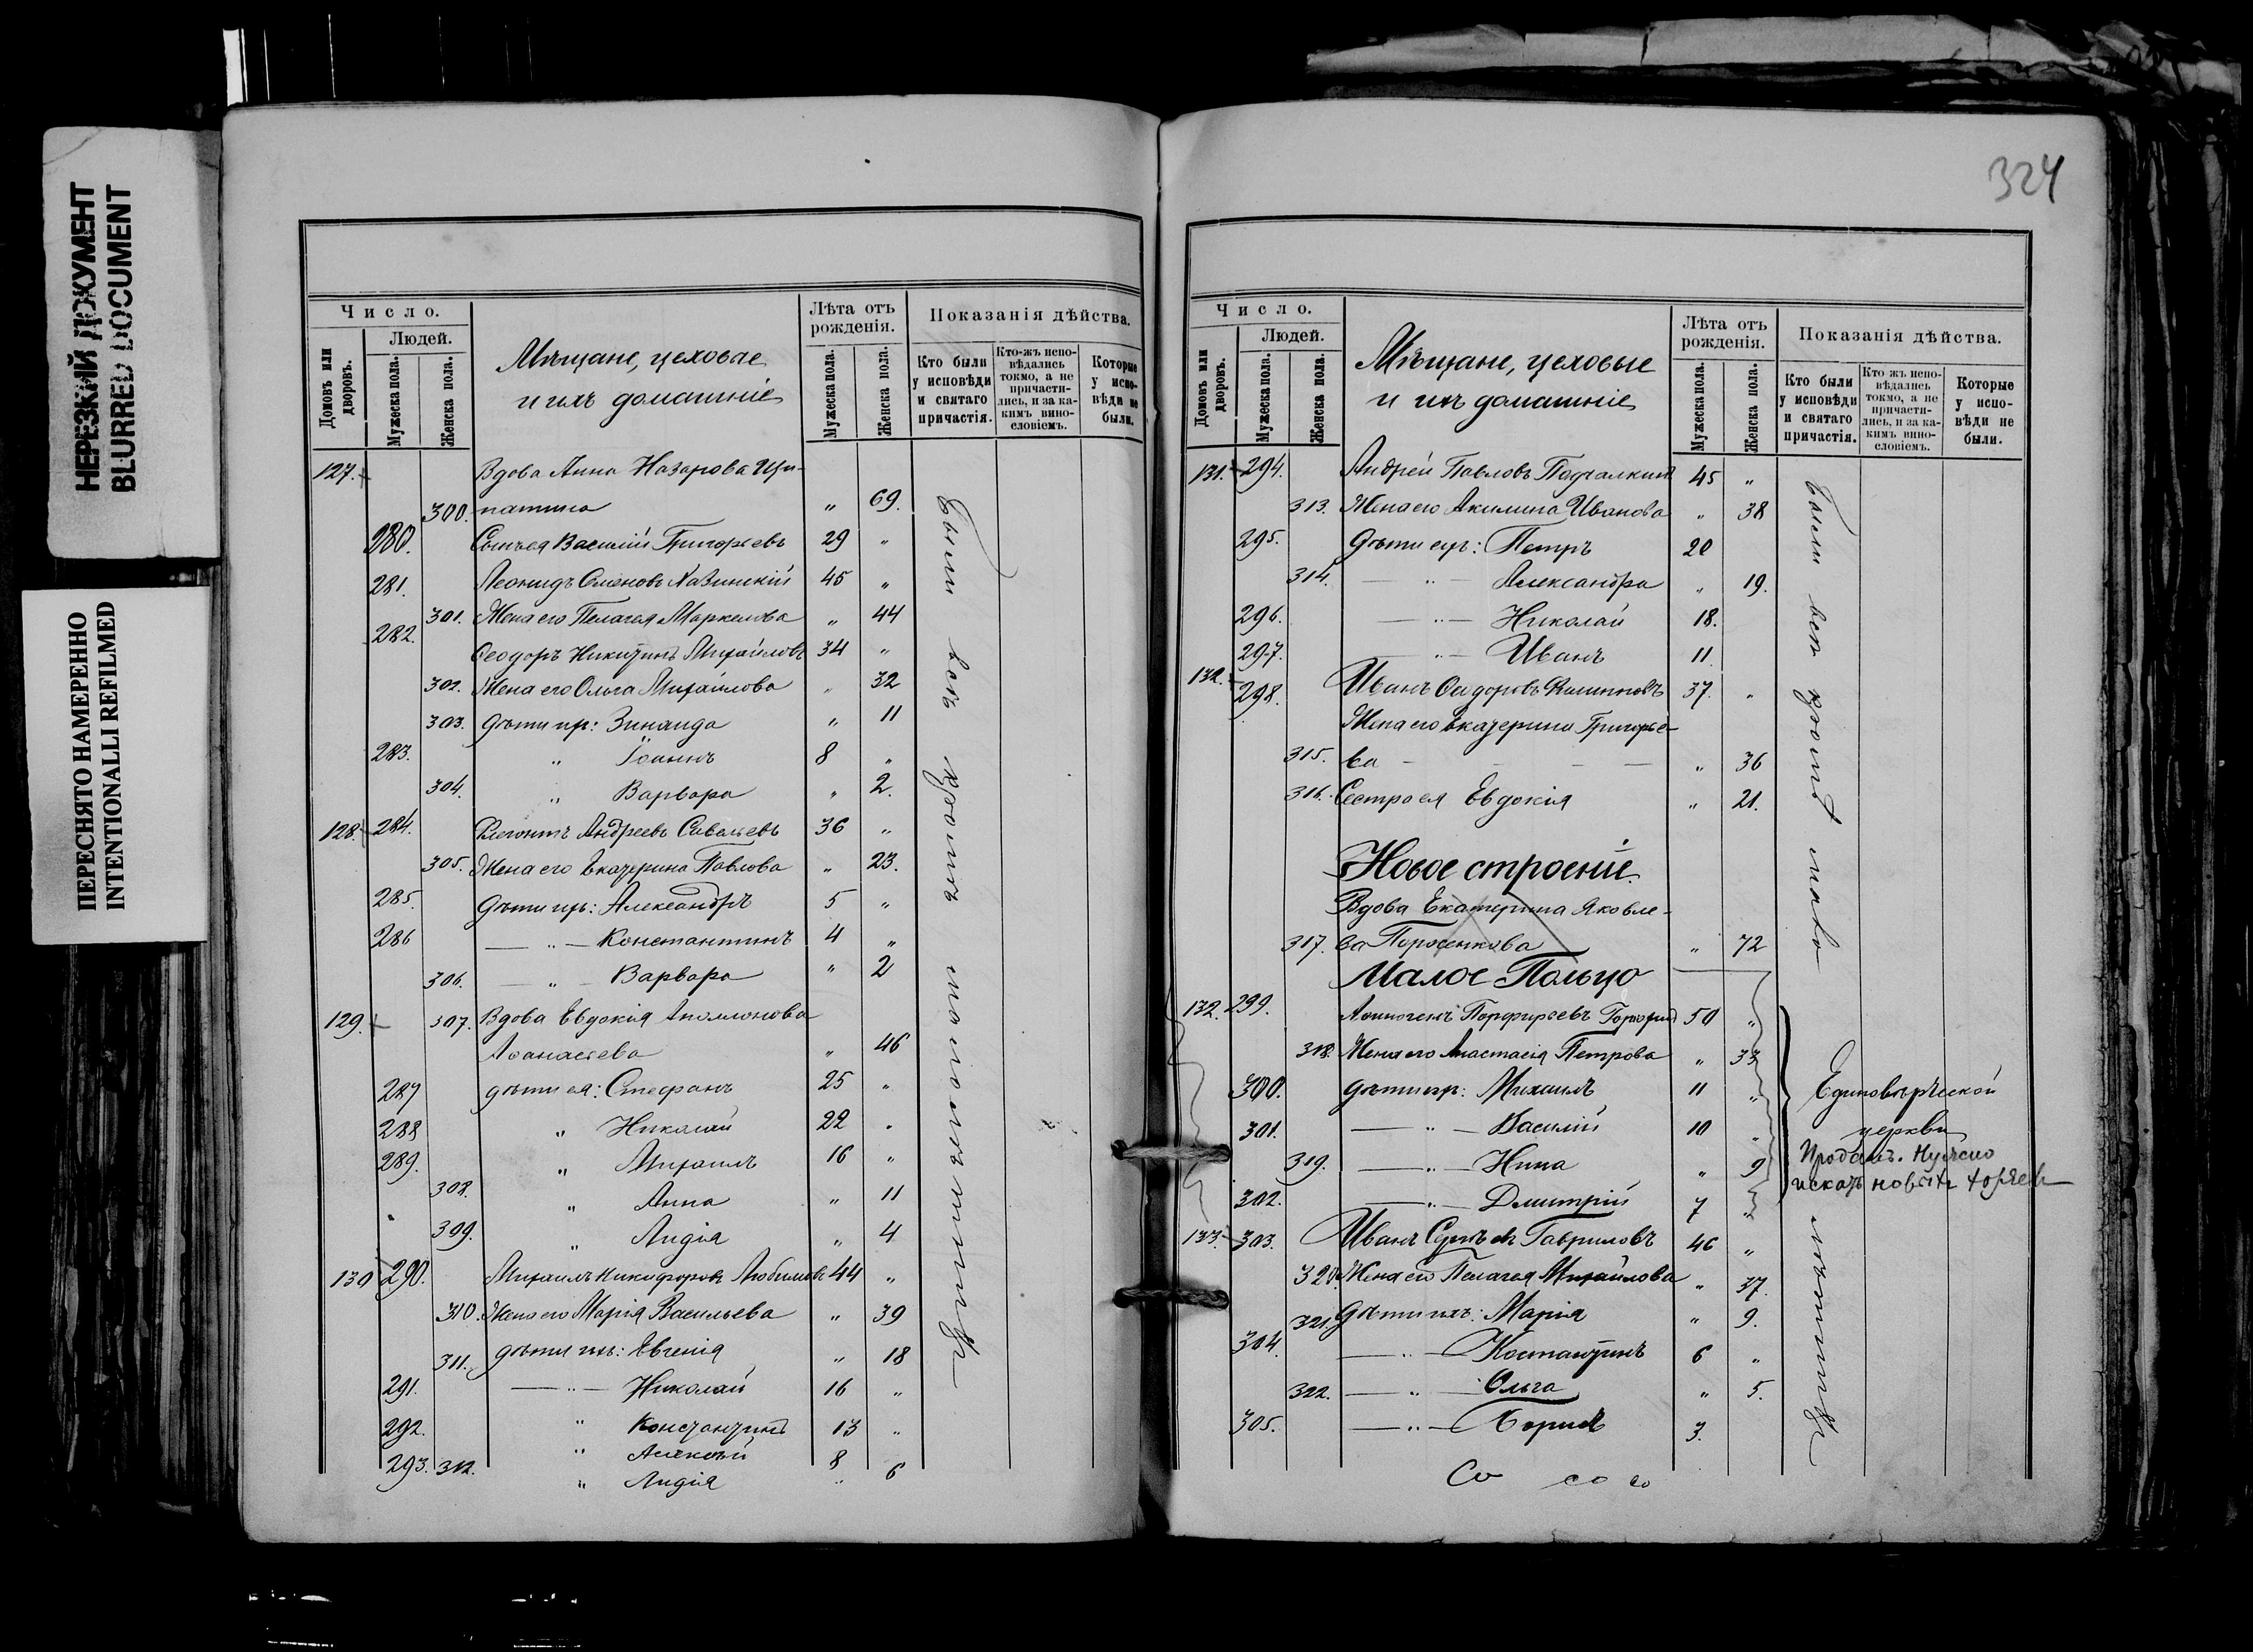 НЕРЕЗКИЙ ДОКУМЕНТ
BLURRED DOCUMENT
ПЕРЕСНЯТО НАМЕРЕННО
INTENTIONALLI REFILMED
Число.
Домовъ или дворовъ.
Людей.
Мужеска пола.
Женска пола.
Мѣщане, цеховые
и ихъ домашніе
Лѣта отъ рожденія.
Мужеска пола.
Женска пола.
Показанія дѣйства.
Кто были у исповѣди и святаго причастія.
Кто-жъ исповѣдались токмо, а не причастились, и за какимъ винословіемъ.
Которые у исповѣди не были.
127. Вдова Анна Назарова
300. " 69.
280. Сынъ ея Василій Григорьевъ 29 "
281. Леонидъ 45 "
301. Жена его Пелагея Маркелова " 44
282. Ѳеодоръ Никитинъ Михайловъ 34 "
302. Жена его Ольга Михайлова " 32
303. Дѣти ихъ: Зинаида " 11
283. " Іоаннъ 8 "
304. " Варвара " 2.
128. 284. Андреевъ Савельевъ 36 "
305. Жена его Екатерина Павлова " 23.
285. Дѣти ихъ: Александръ 5 "
286 — " — Константинъ 4 "
306. — " — Варвара " 2
129. 307. Вдова Евдокія Аполлонова
Аѳанасьева " 46
287 дѣти ея: Стефанъ 25 "
288 " Николай 22 "
289. " Михаилъ 16 "
308. " Анна " 11
309. " Лидія " 4
130 290. Михаилъ Никифоровъ Любимовъ 44 "
310. Жена его Марія Васильева " 39
311. дѣти ихъ: Евгенія " 18
291. — " — Николай 16 "
292. " Константинъ 13 "
293. " Алексѣй 8
312. " Лидія " 6
Были всѣ кромѣ малолѣтнихъ
324
Число.
Домовъ или дворовъ.
Людей.
Мужеска пола.
Женска пола.
Мѣщане, цеховые
и ихъ домашніе
Лѣта отъ рожденія.
Мужеска пола.
Женска пола.
Показанія дѣйства.
Кто были у исповѣди и святаго причастія.
Кто жъ исповѣдались токмо, а не причастились, и за какимъ винословіемъ.
Которые у исповѣди не были.
131. 294. Андрей Павловъ 45 "
313. Жена его Акилина Иванова " 38
295. Дѣти ихъ: Петръ 20
314. — " — Александра " 19.
296. — " — Николай 18.
297. — " — Иванъ 11
132. 298. Иванъ Ѳедоровъ 37. "
Жена его Екатерина Григорье-
315. ва — — — " 36
316. Сестра ея Евдокія " 21.
Новое строеніе.
Вдова Екатерина Яковле-
317. ва Поросенкова " 72
Малое Польцо
132. 299. Порфирьевъ 50 "
318. Жена его Анастасія Петрова " 33
300. дѣти ихъ: Михаилъ 11 "
301. — " — Василій 10 "
319. — " — Нина " 9
302. — " — Дмитрій 7 "
Единовѣрческой
церкви
Нужно
искать
133. 303. Иванъ Гавриловъ 46 "
320. Жена его Пелагея Михайлова " 37.
321. Дѣти ихъ: Марія " 9.
304. — " — Костантинъ 6 "
322. — " — Ольга " 5.
305. — " — Борисъ 3.
Были всѣ кромѣ мало-
лѣтнихъ